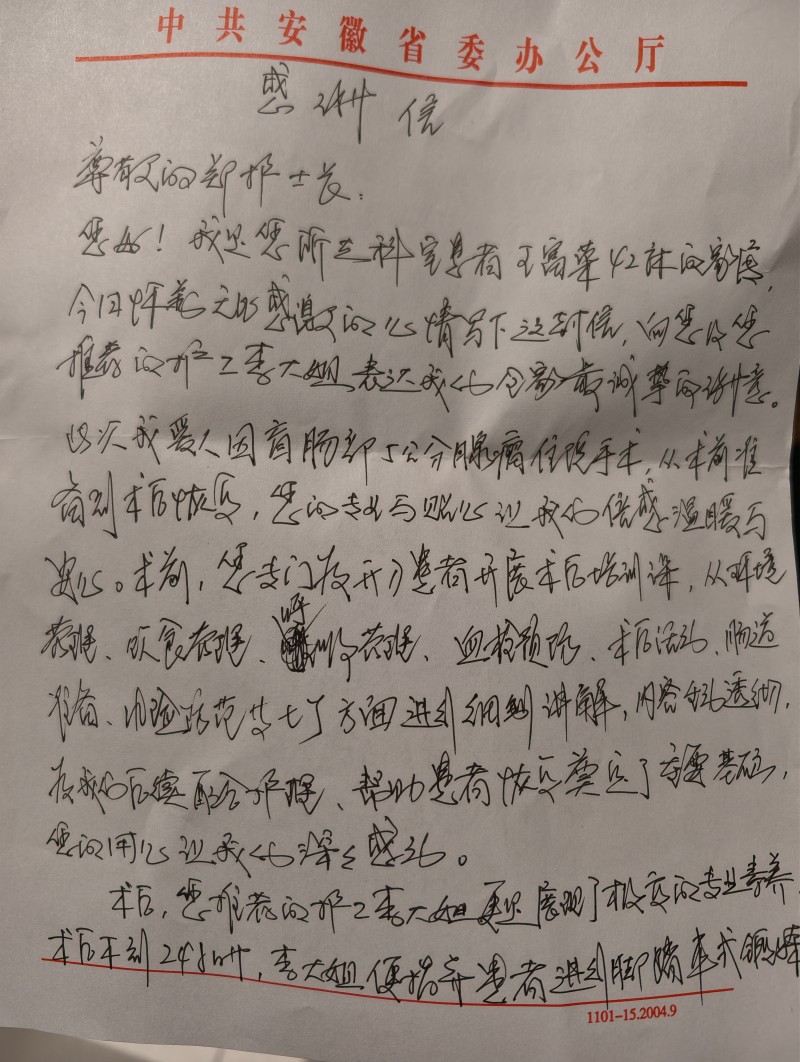 中共安徽省委办公厅
感谢信
尊敬的郑护士长：
您好！我是您所在科室患者王富荣42床的家属，
今日怀着无比感激的心情写下这封信，向您及您
推荐的护工李大姐表达我们全家最诚挚的谢意。
此次我爱人因盲肠部5公分腺瘤住院手术，从术前准
备到术后恢复，您的专业与贴心让我们倍感温暖与
安心。术前，您专门召开了患者开展术后培训课，从环境
管理、饮食管理、呼吸管理、血栓预防、术后活动、肠道
准备、风险防范等七个方面进行细致讲解，内容生动透彻，
为我们后续配合护理、帮助患者恢复奠定了重要基础，
您的用心让我们深深感动。
术后，您推荐的护工李大姐更是展现了极高的专业素养，
术后不到24小时，李大姐便指导患者进行脚踏车式锻炼
1101-15.2004.9